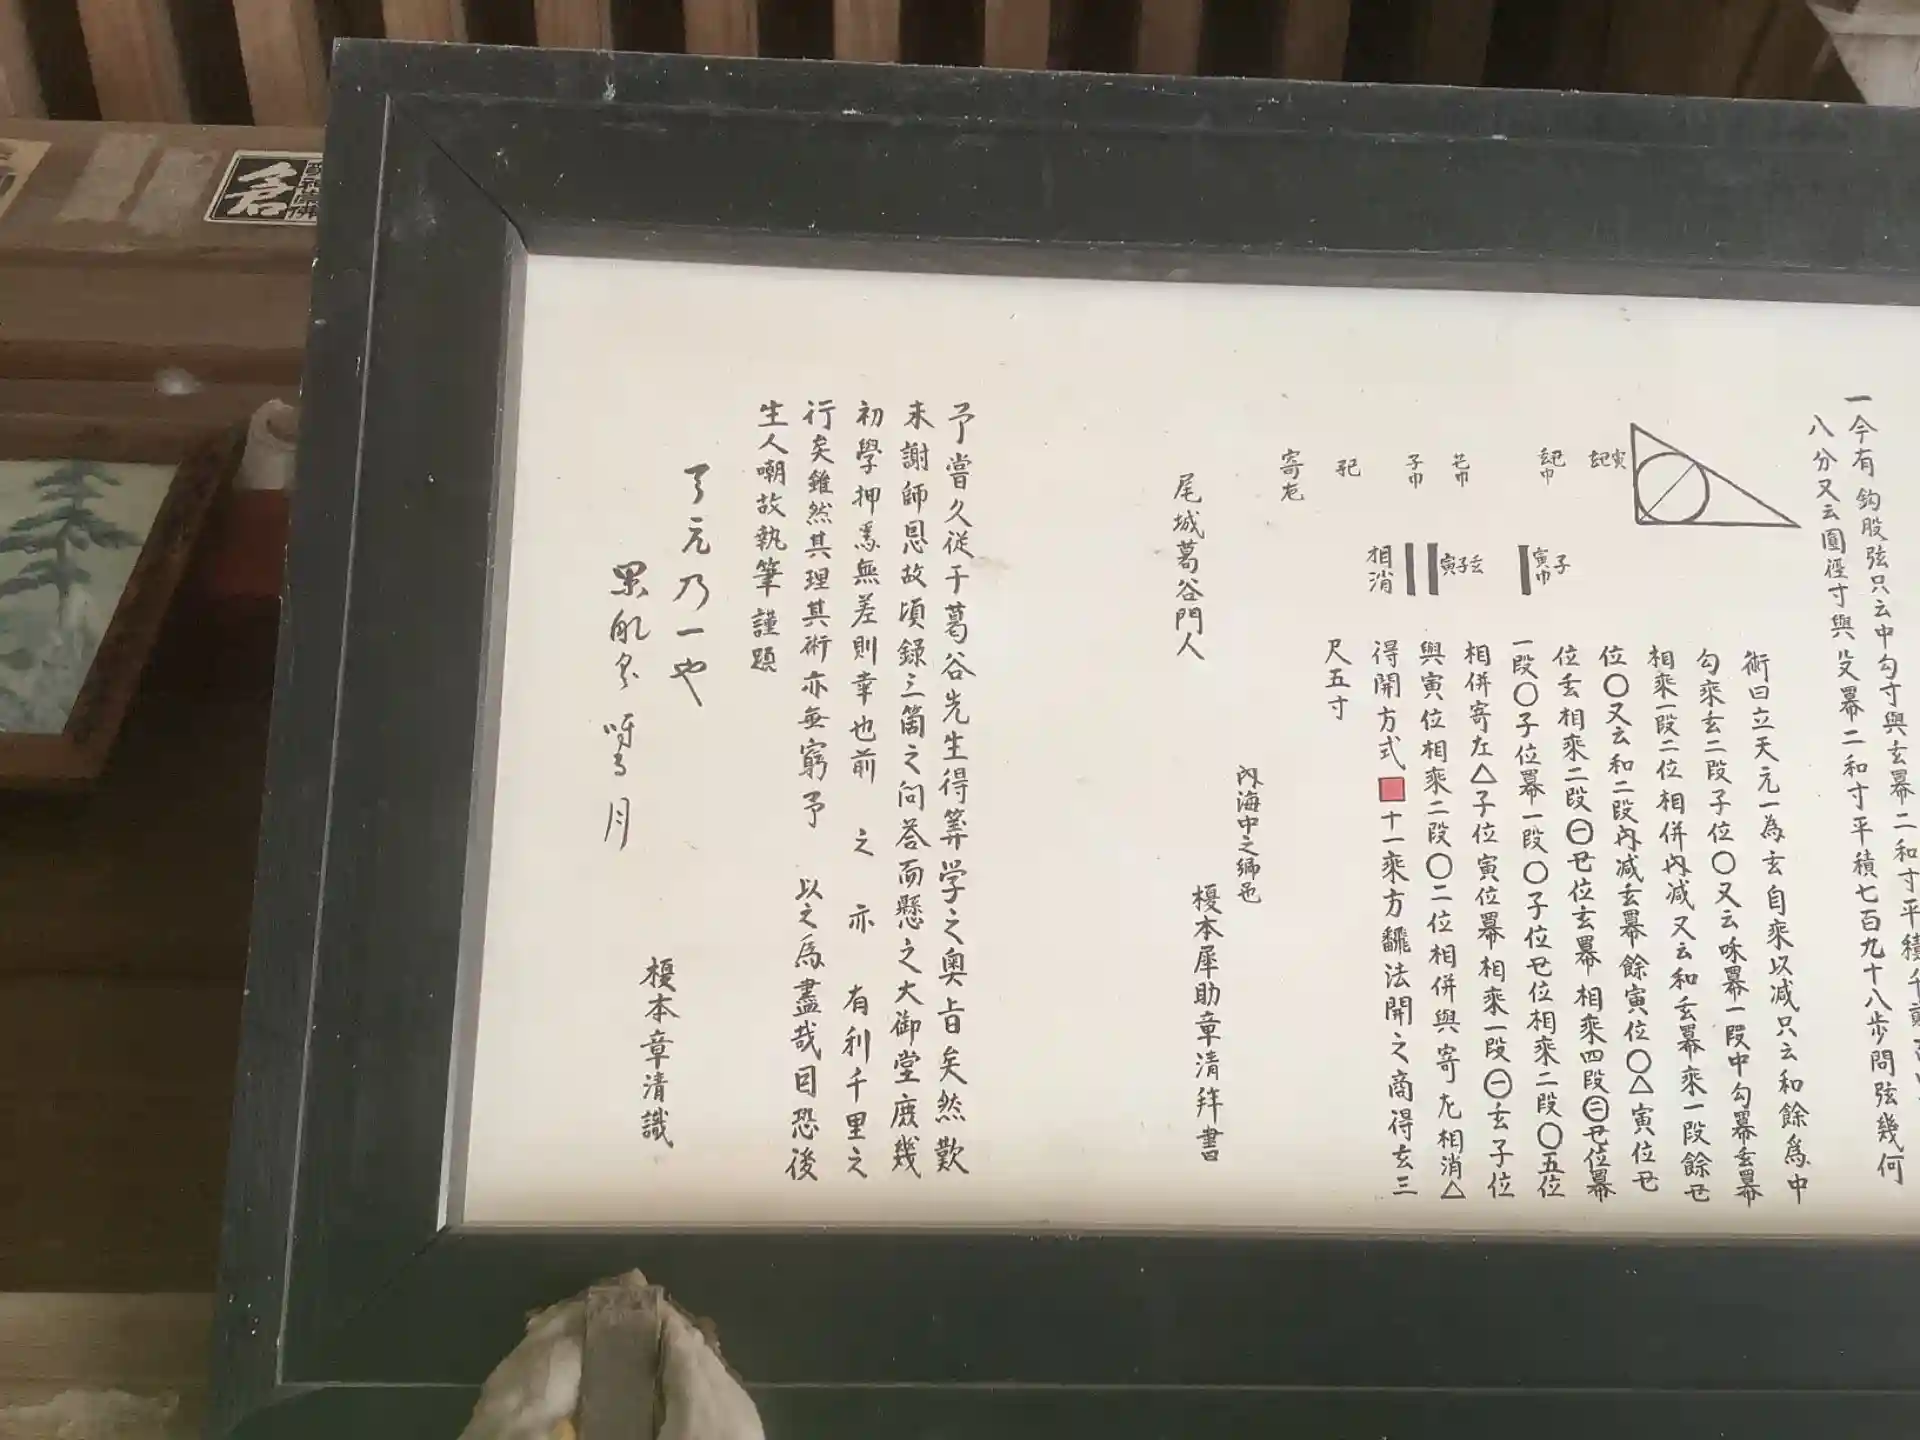 一今有鈎股弦只云中勾寸與玄冪二和寸平積千
八分又云圓徑寸與殳冪二和寸平積七百九十八歩問弦幾何
術曰立天元一為玄自乘以减只云和餘爲中
勾乘玄二段子位〇又云咊冪一段中勾冪玄冪
相乘一段二位相併内减又云和玄冪乘一段餘丑
位〇又云和二段内减玄冪餘寅位〇△寅位丑
位玄相乘二段㊀丑位玄冪相乘四段㊁丑位冪
一段〇子位冪一段〇子位丑位相乘二段〇五位
相併寄左△子位寅位冪相乘一段㊀玄子位
與寅位相乘二段〇二位相併與寄左相消△
得開方式 十一乘方飜法開之商得玄三
尺五寸
相消
寄左
尾城葛谷門人
内海中之郷邑
榎本犀助章清拜書
予嘗久従于葛谷先生得筭学之奥旨矣然歎
未謝師恩故頃録三箇之问荅而懸之大御堂庶幾
初學押爲無差則幸也前 之 亦 有利千里之
行矣雖然其理其術亦無窮予 以之爲盡哉因恐後
生人嘲故執筆謹題
了元乃一也
月
榎本章清識
倉